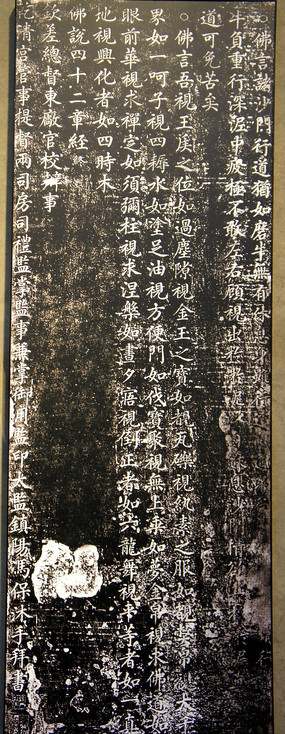 ○佛言諸沙門行道猶如磨牛無有
牛負重行深泥中疲極不敢左右顧視出
道可免苦矣
○佛言吾視王侯之位如過塵隙視金玉之寶如視瓦礫視紈素之服如視弊帛視大千
界如一呵子視四耨水如塗足油視方便門如伐寶聚視無上乘如夢金帛視求佛道如
眼前華視求禪定如須彌柱視求涅槃如晝夕寤視倒正者如六龍舞視平等者如一真
地視興化者如四時木
佛說四十二章經終
欽差總督東廠官校辦事
乾清宮管事提督兩司房司禮監掌監事兼掌御用監印太監鎮陽馮保沐手拜書